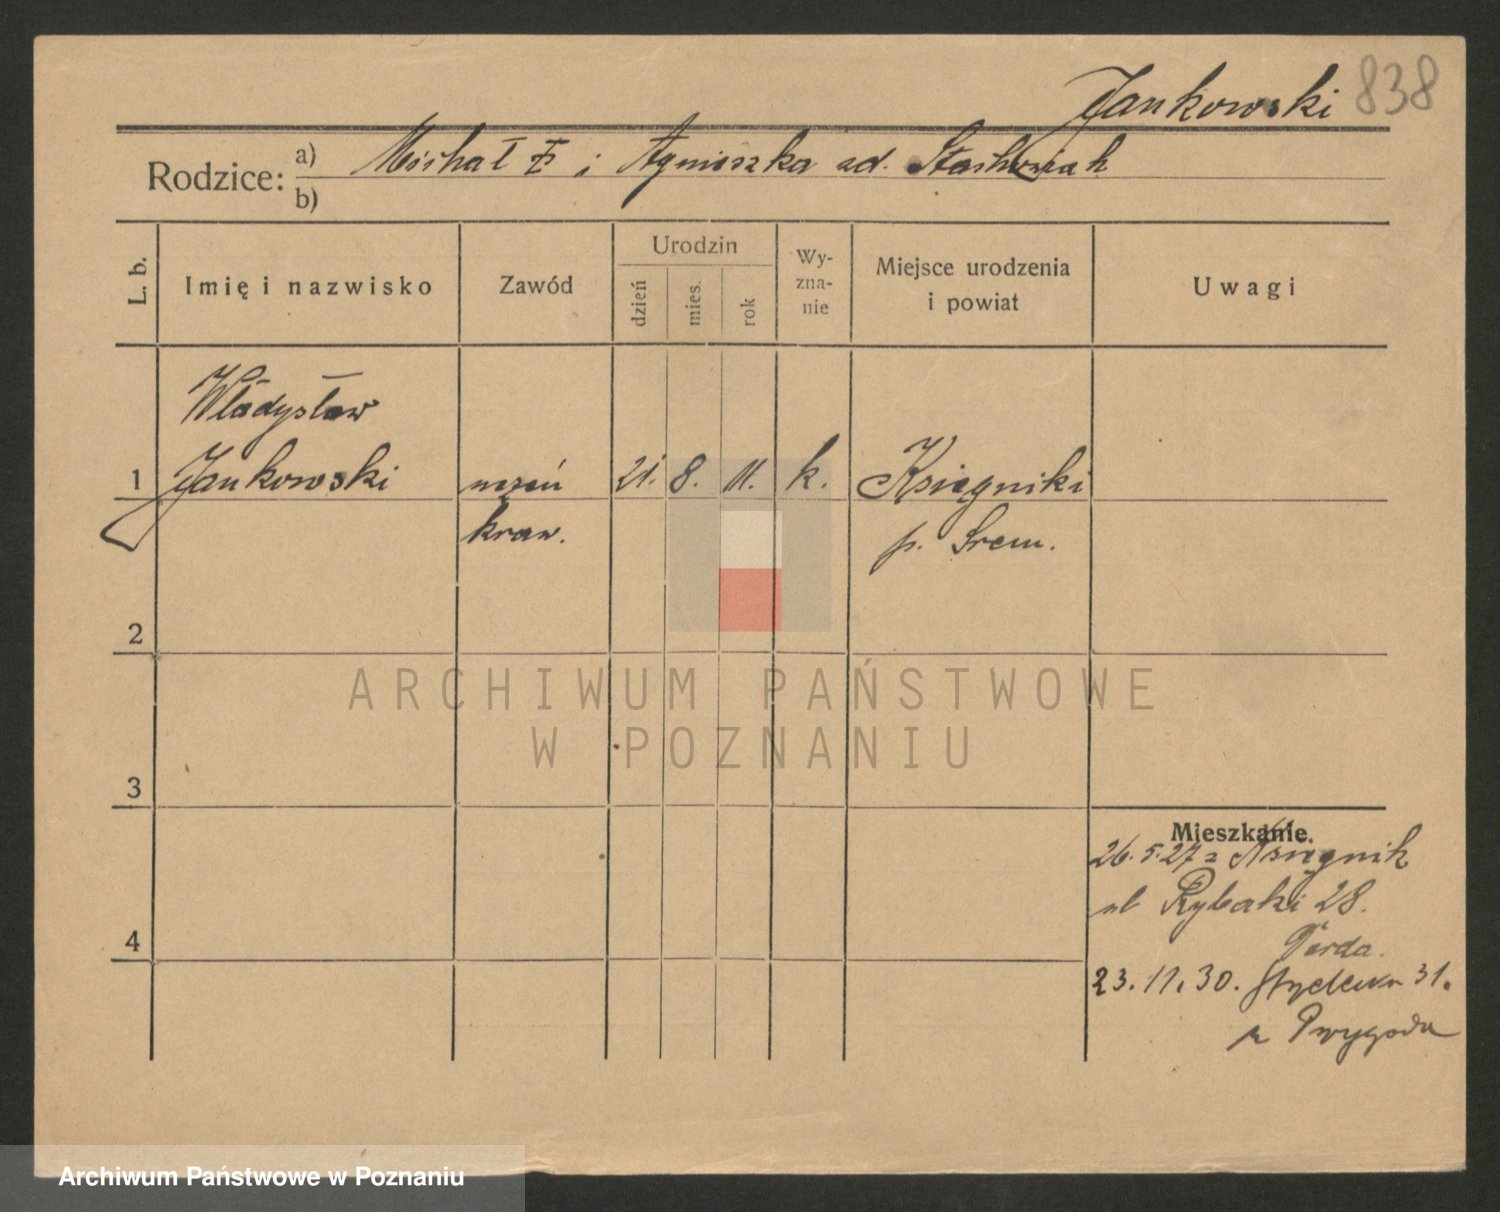 Jankowski 838
Rodzice: a) Michał i Agnieszka zd. Stachowiak
b)
L. b. Imię i nazwisko Zawód Urodzin dzień mies. rok Wy-zna-nie Miejsce urodzenia i powiat Uwagi
Władysław
1 Jankowski uczeń 21. 8. 11. k. Księgniki
kraw. p. Śrem.
2
ARCHIWUM PAŃSTWOWE
W POZNANIU
3
Mieszkanie.
26.5.27 z Księgnik
ul Rybaki 28.
4
23.11.30. 31.
Archiwum Państwowe w Poznaniu